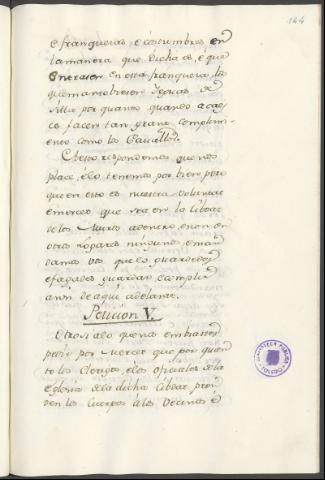 144
e franquezas, e costumbres en
la manera que dicha es, é que
entrasen en esta franqueza, los
que mantobiesen Yeguas de
silla por quanto quando acaes
ce facen tan grano complimi-
ento como los Cavallos.
A esto respondemos que nos
place, élo tenemos por bien, pero
que en esto es nuestra voluntat
emerced que sea en la Cibdat
de los Muros adentro, enon en
otros Logares ningunos, e man
damos vos que lo guardedes,
efagades guardar, e complir
ansi de aqui adelante.
Peticion V.
Otrosi alo que nos embiastes
pedir por Merced que por quan
to los Clerigos, elos oficiales de la
Eglesia de la dicha Cibdat, pren
den los Cuerpos á los Vecinos e
BIBLIOTECA PUBLICA
TOLEDO